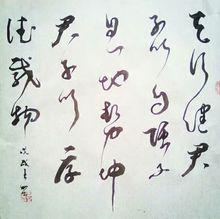 天行健君
子以自強不
息地勢坤
君子以厚
德載物
戊戌